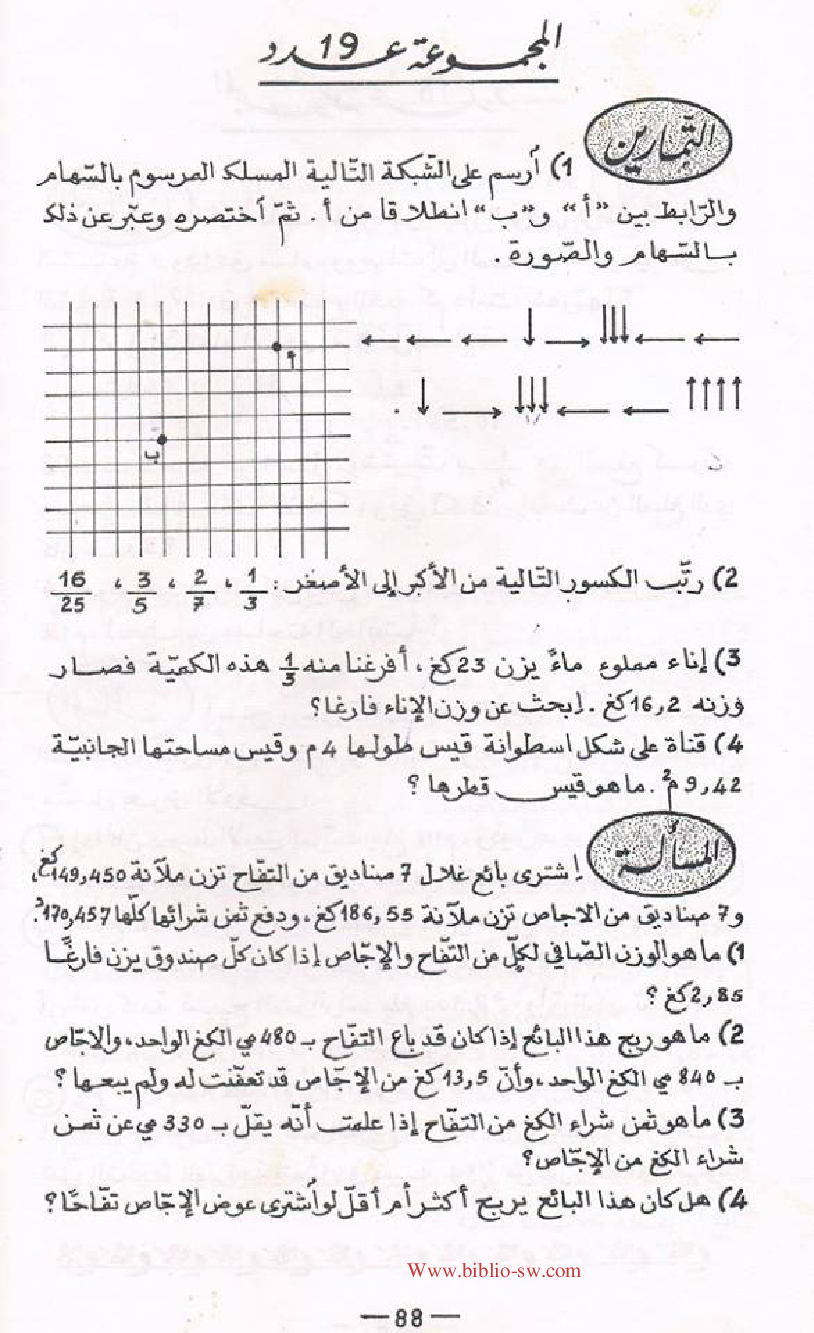 المجموعة عدد 19
التمارين
1) أرسم على الشبكة التالية المسلك المرسوم بالسّهام
والرّابط بين "أ" و"ب" انطلاقا من أ. ثمّ أختصره وعبّر عن ذلك
بالسّهام والصّورة.
← ← ← ↓ → ↓↓↓ ← ←
أ
↑↑↑↑ ← ← ↓↓↓ → ↓ .
ب
2) رتّب الكسور التالية من الأكبر إلى الأصغر: 1/3 ، 2/7 ، 3/5 ، 16/25
3) إناء مملوء ماءً يزن 23 كغ، أفرغنا منه 1/3 هذه الكميّة فصار
وزنه 16,2 كغ. إبحث عن وزن الإناء فارغا؟
4) قناة على شكل اسطوانة قيس طولها 4 م وقيس مساحتها الجانبيّة
9,42 م². ما هو قيس قطرها؟
المسألة
إشترى بائع غلال 7 صناديق من التفّاح تزن ملآنة 149,450 كغ،
و7 صناديق من الاجاص تزن ملآنة 186,55 كغ، ودفع ثمن شرائها كلّها 170,457د.
1) ما هو الوزن الصّافي لكلّ من التفّاح والإجّاص إذا كان كلّ صندوق يزن فارغًا
2,85 كغ؟
2) ما هو ربح هذا البائع إذا كان قد باع التفّاح بـ 480 مي الكغ الواحد، والاجّاص
بـ 840 مي الكغ الواحد، وأنّ 13,5 كغ من الإجّاص قد تعفّنت له ولم يبعها؟
3) ما هو ثمن شراء الكغ من التفّاح إذا علمت أنّه يقلّ بـ 330 مي عن ثمن
شراء الكغ من الإجّاص؟
4) هل كان هذا البائع يربح أكثر أم أقلّ لو اُشترى عوض الإجّاص تفّاحًا؟
Www.biblio-sw.com
— 88 —